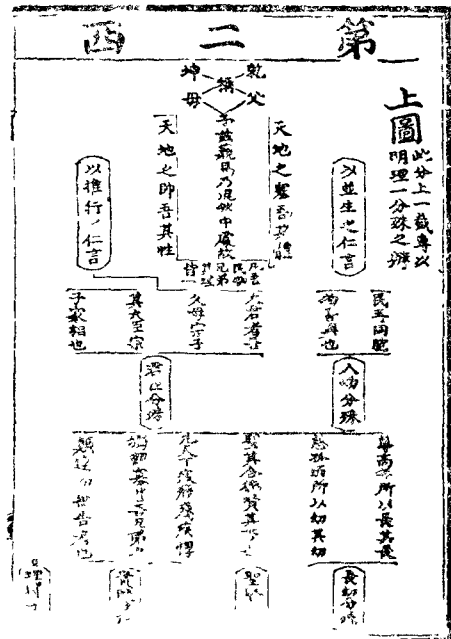 第二西
上圖
此分上一截專以
明理一分殊之辨
乾父
坤母
稱
予玆藐焉乃混然中處故
天地之塞吾其體
天地之帥吾其性
以並生之仁言
以推行ノ仁言
民吾同胞
物吾與也
大君者吾
父母宗子
其大臣宗
子家相也
人物分殊
君臣分殊
尊高年所以長其長
慈孤弱所以幼其幼
聖其合德賢其
凡天下疲癃殘疾惸
獨鰥寡皆吾兄弟
顚連而無告者也
長幼分殊